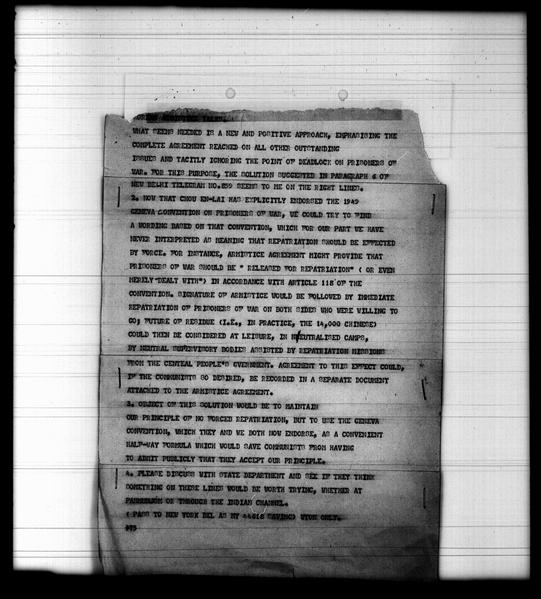 KOREAN ARMISTICE TALKS.
WHAT SEEMS NEEDED IS A NEW AND POSITIVE APPROACH, EMPHASISING THE
COMPLETE AGREEMENT REACHED ON ALL OTHER OUTSTANDING
ISSUES AND TACITLY IGNORING THE POINT OF DEADLOCK ON PRISONERS OF
WAR. FOR THIS PURPOSE, THE SOLUTION SUGGESTED IN PARAGRAPH 6 OF
NEW DELHI TELEGRAM NO.859 SEEMS TO ME ON THE RIGHT LINES.
2. NOW THAT CHOU EN-LAI HAS EXPLICITLY ENDORSED THE 1949
GENEVA CONVENTION ON PRISONERS OF WAR, WE COULD TRY TO FIND
A WORDING BASED ON THAT CONVENTION, WHICH FOR OUR PART WE HAVE
NEVER INTERPRETED AS MEANING THAT REPATRIATION SHOULD BE EFFECTED
BY FORCE. FOR INSTANCE, ARMISTICE AGREEMENT MIGHT PROVIDE THAT
PRISONERS OF WAR SHOULD BE " RELEASED FOR REPATRIATION" ( OR EVEN
MERELY "DEALT WITH") IN ACCORDANCE WITH ARTICLE 118 OF THE
CONVENTION. SIGNATURE OF ARMISTICE WOULD BE FOLLOWED BY IMMEDIATE
REPATRIATION OF PRISONERS OF WAR ON BOTH SIDES WHO WERE WILLING TO
GO; FUTURE OF RESIDUE (I.E., IN PRACTICE, THE 14,000 CHINESE)
COULD THEN BE CONSIDERED AT LEISURE, IN NEUTRALISED CAMPS,
BY NEUTRAL SUPERVISORY BODIES ASSISTED BY REPATRIATION MISSIONS
FROM THE CENTRAL PEOPLE'S GVERNMENT. AGREEMENT TO THIS EFFECT COULD,
IF THE COMMUNISTS SO DESIRED, BE RECORDED IN A SEPARATE DOCUMENT
ATTACHED TO THE ARMISTICE AGREEMENT.
3. OBJECT OF THIS SOLUTION WOULD BE TO MAINTAIN
OUR PRINCIPLE OF NO FORCED REPATRIATION, BUT TO USE THE GENEVA
CONVENTION, WHICH THEY AND WE BOTH NOW ENDORSE, AS A CONVENIENT
HALF-WAY FORMULA WHICH WOULD SAVE COMMUNISTS FROM HAVING
TO ADMIT PUBLICLY THAT THEY ACCEPT OUR PRINCIPLE.
4. PLEASE DISCUSS WITH STATE DEPARTMENT AND SEE IF THEY THINK
SOMETHING ON THESE LINES WOULD BE WORTH TRYING, WHETHER AT
PANMUNJOM OR THROUGH THE INDIAN CHANNEL.
( PASS TO NEW YORK DEL AS MY SAVING) WTON ONLY.